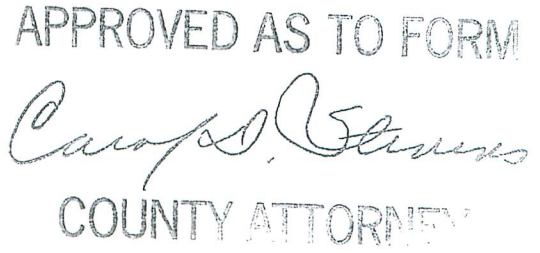 APPROVED AS TO FORM
D. Stevens
COUNTY ATTORNEY